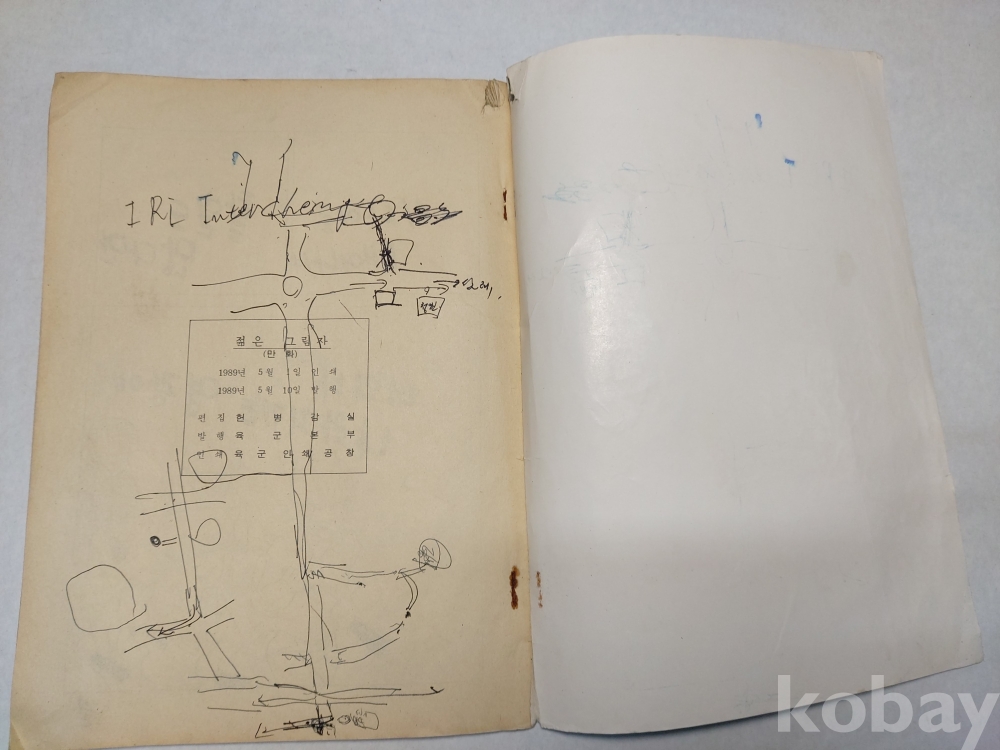 IRi Interchang
젊은 그림자
(만 화)
1989년 5월 1일 인쇄
1989년 5월 10일 발행
편집 헌병감실
발행 육군본부
인쇄 육군인쇄공창
kobay